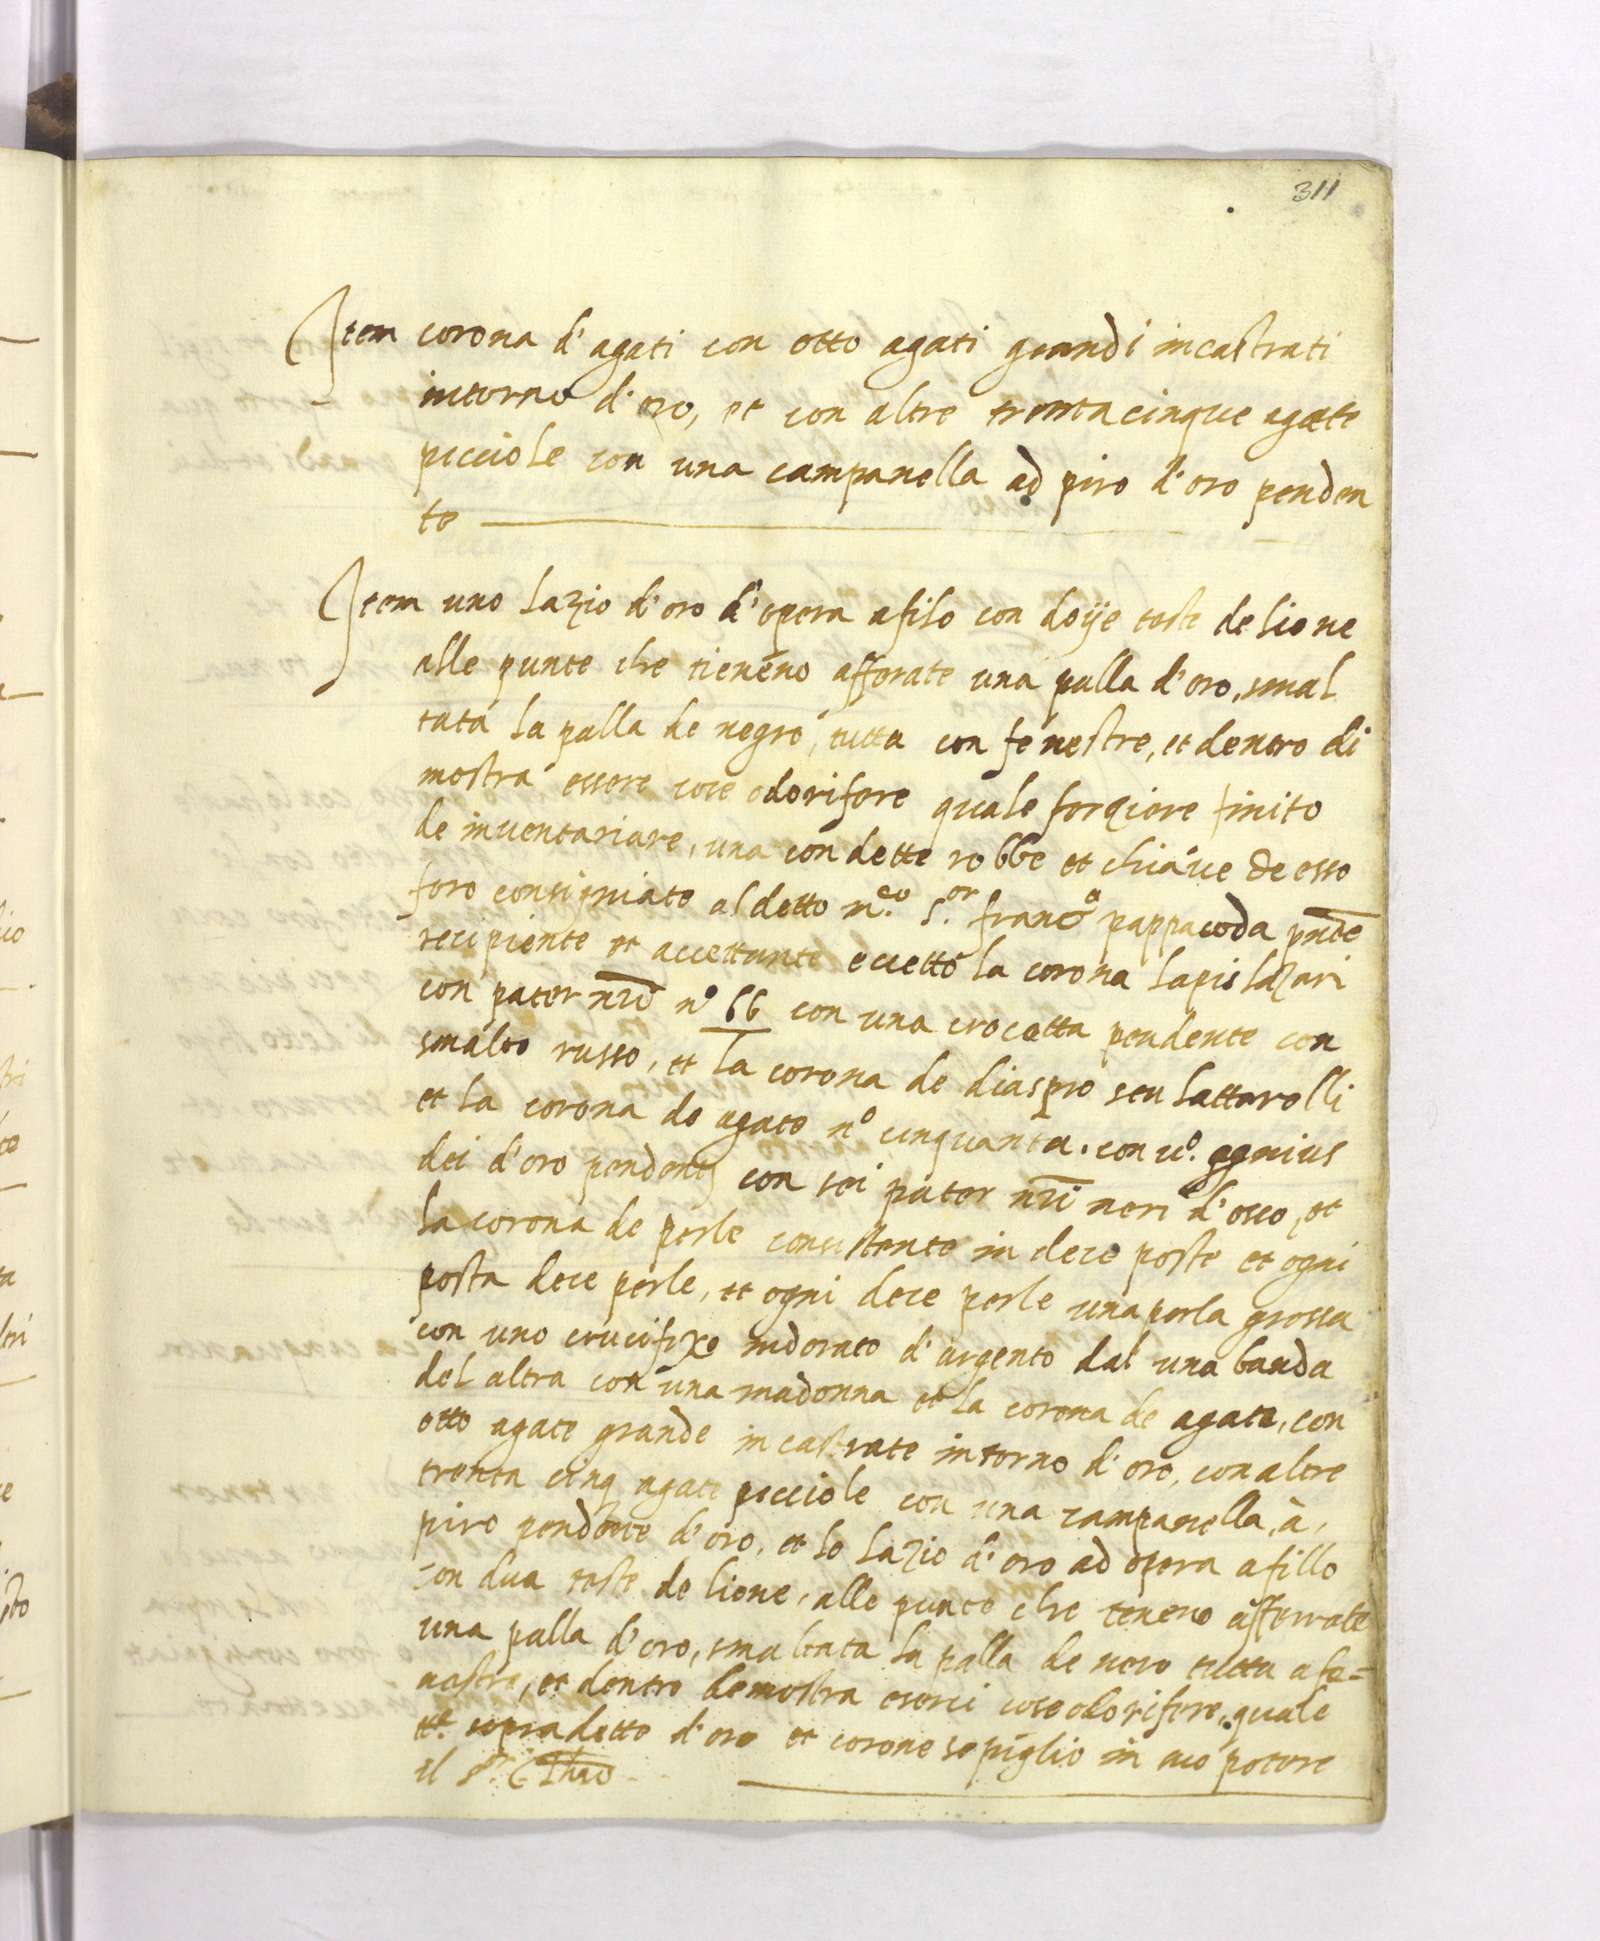 311
Item corona d'agati con otto agati grandi incastrati
intorno d'oro, et con altre trentacinque agate
picciole con una campanella ad piro d'oro penden
te
Item uno lazio d'oro d'opera afilo con doije teste de lione
alle punte che tieneno afferrate una palla d'oro, smal
tata la palla de negro, tutta con fenestre, et dentro di
mostra essere cose odorifere quale forziere finito
de inventariare, una con dette robbe et chiave de esso
foro consigniate al detto m.co s.or franc.o pappacoda pnte
recipiente et accettante eccetto la corona lapis lazari
con pater nri n.o 66 con una crocetta pendente con
smalto russo, et la corona de diaspro seu lattarolli
et la corona de agate n.o cinquanta. con agnius
dei d'oro pendente con sei pater nri neri d'osso, et
la corona de perle consistente in dece poste et ogni
posta dece perle, et ogni dece perle una perla grossa
con uno crucifixo indorato d'argento dal una banda
del altra con una madonna et la corona de agata, con
otto agate grande incastrate intorno d'oro, con altre
trenta cinq agate picciole con una campanella, à,
piro pendente d'oro, et lo lazio d'oro ad opera afillo
con dua teste de lione, alle punte che teneno afferrate
una palla d'oro, smaltata la palla de nero tutta a fe=
nestre, et dentro demostra eserci cose odorifere, quale
sopradette d'oro et corone se piglio in suo potere
il s.r